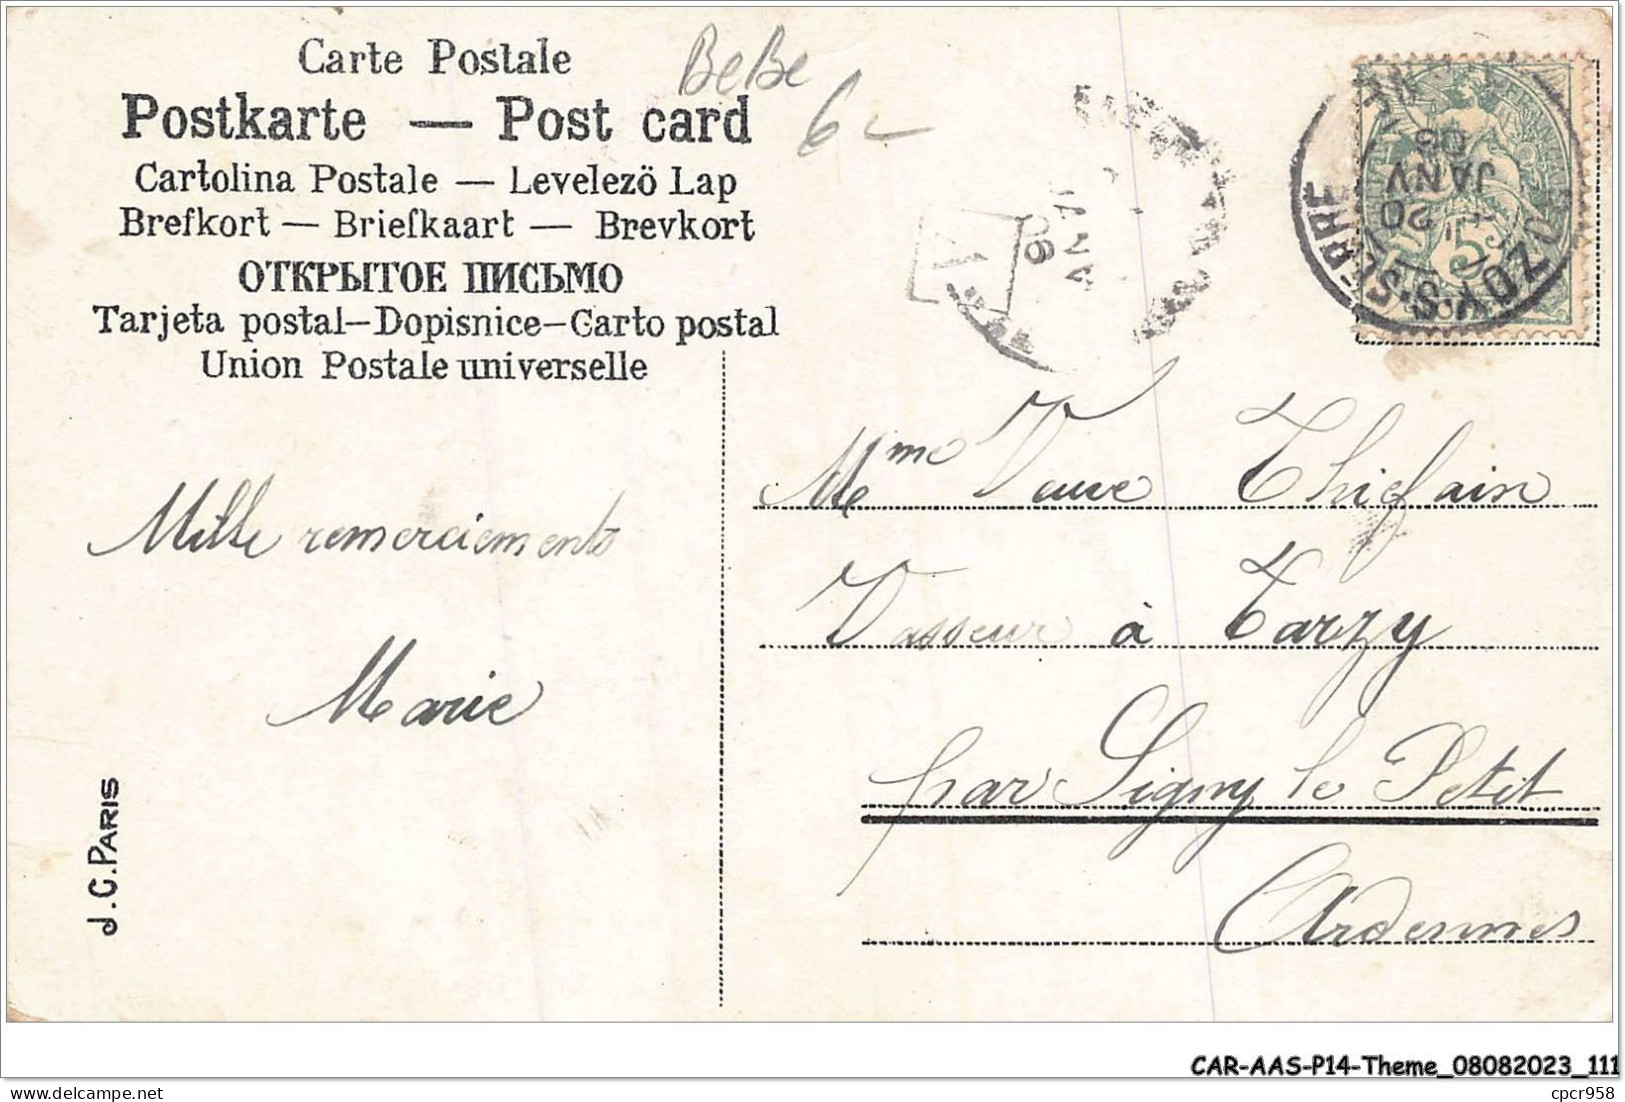 Carte Postale
Postkarte — Post card
Cartolina Postale — Levelezö Lap
Brefkort — Briefkaart — Brevkort
ОТКРЫТОЕ ПИСЬМО
Tarjeta postal—Dopisnice—Carto postal
Union Postale universelle
BeBe
6
A
JANV
06
ROZOY-S-SERRE
20
JANV
5
Mille remerciements
Marie
J.C. PARIS
Mme Veuve Thiefain
Vasseur à Tarzy
par Signy le Petit
Ardennes
CAR-AAS-P14-Theme_08082023_111
cpcr958